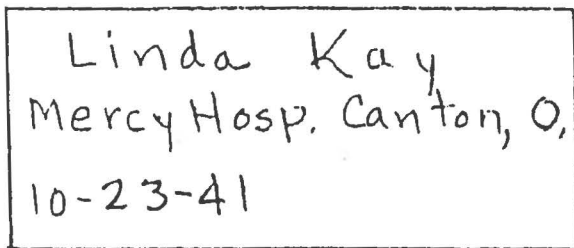 Linda Kay
Mercy Hosp. Canton, O.
10-23-41